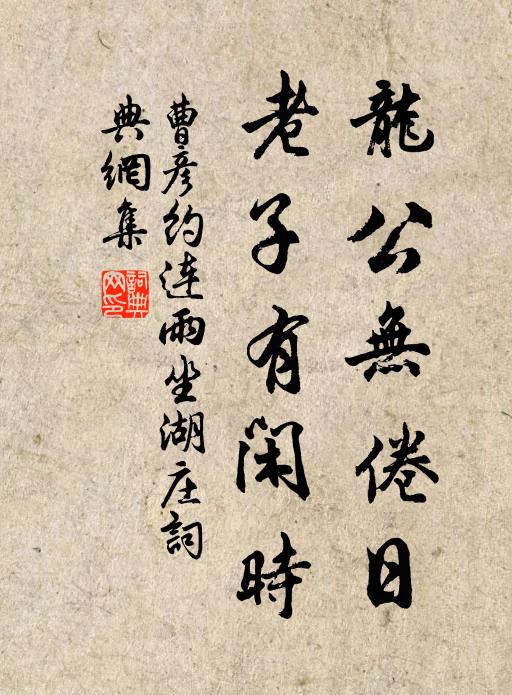 龍公無倦日
老子有閑時
曹彥約連雨坐湖庄詞
典網集
詞典
网印